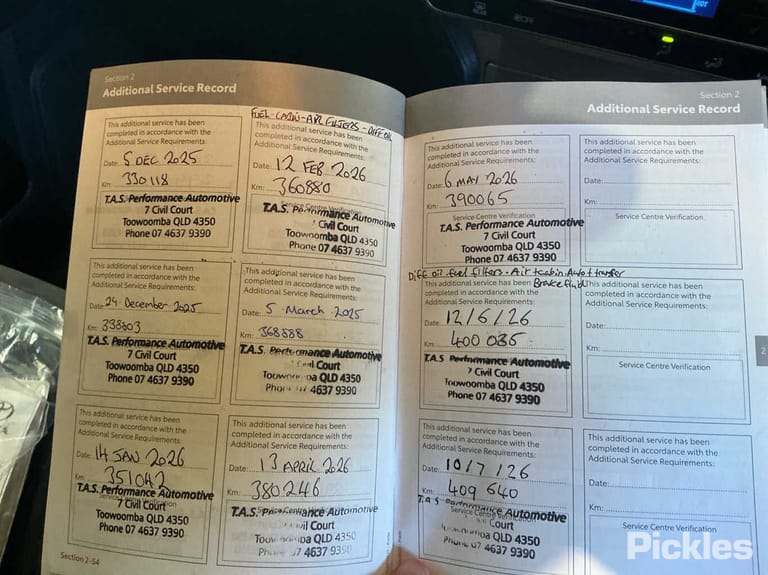 Section 2
Additional Service Record
This additional service has been
completed in accordance with the
Additional Service Requirements:
Date: 5 DEC 2025
Km: 330118
T.A.S. Performance Automotive
7 Civil Court
Toowoomba QLD 4350
Phone 07 4637 9390
This additional service has been
completed in accordance with the
Additional Service Requirements:
Date: 24 December 2025
Km: 338803
T.A.S. Performance Automotive
7 Civil Court
Toowoomba QLD 4350
Phone 07 4637 9390
This additional service has been
completed in accordance with the
Additional Service Requirements:
Date: 14 JAN 2026
Km: 351042
T.A.S. Performance Automotive
Service Centre Verification
7 Civil Court
Toowoomba QLD 4350
Phone 07 4637 9390
Section 2-54
FUEL - CABIN - AIR FILTERS - DIFF OIL
This additional service has been
completed in accordance with the
Additional Service Requirements:
Date: 12 FEB 2026
Km: 360880
Service Centre Verification
T.A.S. Performance Automotive
Civil Court
Toowoomba QLD 4350
Phone 07 4637 9390
This additional service has been
completed in accordance with the
Additional Service Requirements:
Date: 5 March 2025
Km: 368888
T.A.S. Performance Automotive
Court
Toowoomba QLD 4350
Phone 4637 9390
This additional service has been
completed in accordance with the
Additional Service Requirements:
Date: 13 APRIL 2026
Km: 380246
Service Centre Verification
T.A.S. Performance Automotive
Civil Court
Toowoomba QLD 4350
Phone 07 4637 9390
Section 2
Additional Service Record
This additional service has been
completed in accordance with the
Additional Service Requirements:
Date: 6 MAY 2026
Km: 390065
Service Centre Verification
T.A.S. Performance Automotive
7 Civil Court
Toowoomba QLD 4350
Phone 07 4637 9390
Diff oil fuel filters - Air + cabin Auto + transfer
Brake fluid
This additional service has been
completed in accordance with the
Additional Service Requirements:
Date: 12/6/26
Km: 400 035
T.A.S Performance Automotive
7 Civil Court
Toowoomba QLD 4350
Phone 07 4637 9390
This additional service has been
completed in accordance with the
Additional Service Requirements:
Date: 10/7/26
Km: 409 640
Service Centre Verification
T.A.S Performance Automotive
Court
QLD 4350
Phone 07 4637 9390
This additional service has been
completed in accordance with the
Additional Service Requirements:
Date:
Km:
Service Centre Verification
This additional service has been
completed in accordance with the
Additional Service Requirements:
Date:
Km:
Service Centre Verification
This additional service has been
completed in accordance with the
Additional Service Requirements:
Date:
Km:
Service Centre Verification
2
Pickles
OFF